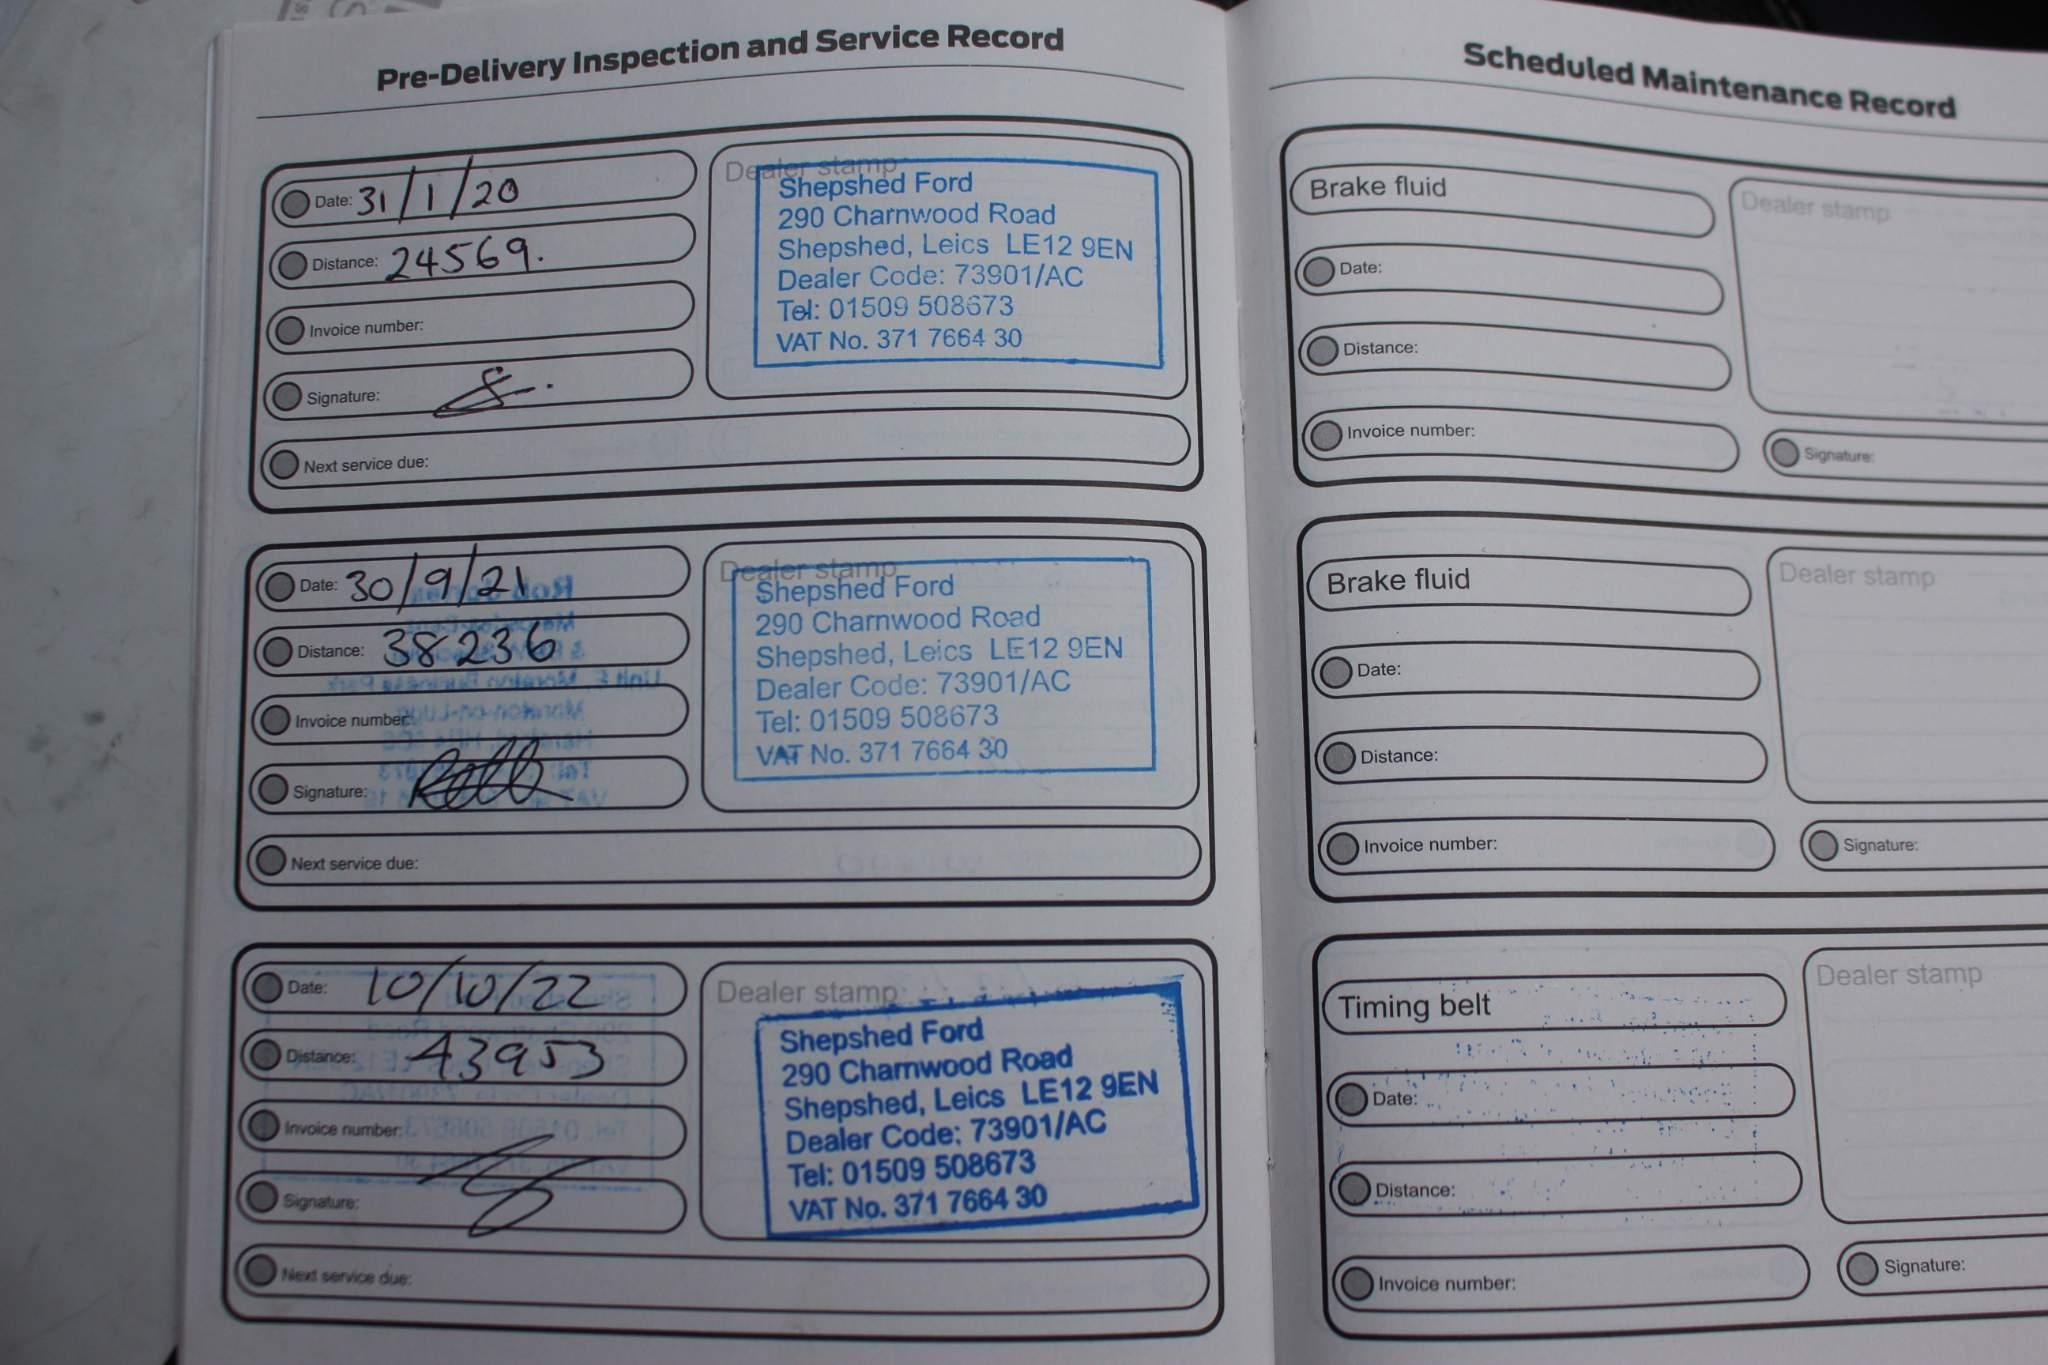 Pre-Delivery Inspection and Service Record
Date: 31/1/20
Distance: 24569.
Invoice number:
Signature:
Next service due:
Dealer stamp
Shepshed Ford
290 Charnwood Road
Shepshed, Leics LE12 9EN
Dealer Code: 73901/AC
Tel: 01509 508673
VAT No. 371 7664 30
Date: 30/9/21
Distance: 38236
Invoice number:
Signature:
Next service due:
Dealer stamp
Shepshed Ford
290 Charnwood Road
Shepshed, Leics LE12 9EN
Dealer Code: 73901/AC
Tel: 01509 508673
VAT No. 371 7664 30
Date: 10/10/22
Distance: 43953
Invoice number:
Signature:
Next service due:
Dealer stamp
Shepshed Ford
290 Charnwood Road
Shepshed, Leics LE12 9EN
Dealer Code: 73901/AC
Tel: 01509 508673
VAT No. 371 7664 30
Scheduled Maintenance Record
Brake fluid
Date:
Distance:
Invoice number:
Dealer stamp
Signature:
Brake fluid
Date:
Distance:
Invoice number:
Dealer stamp
Signature:
Timing belt
Date:
Distance:
Invoice number:
Dealer stamp
Signature: